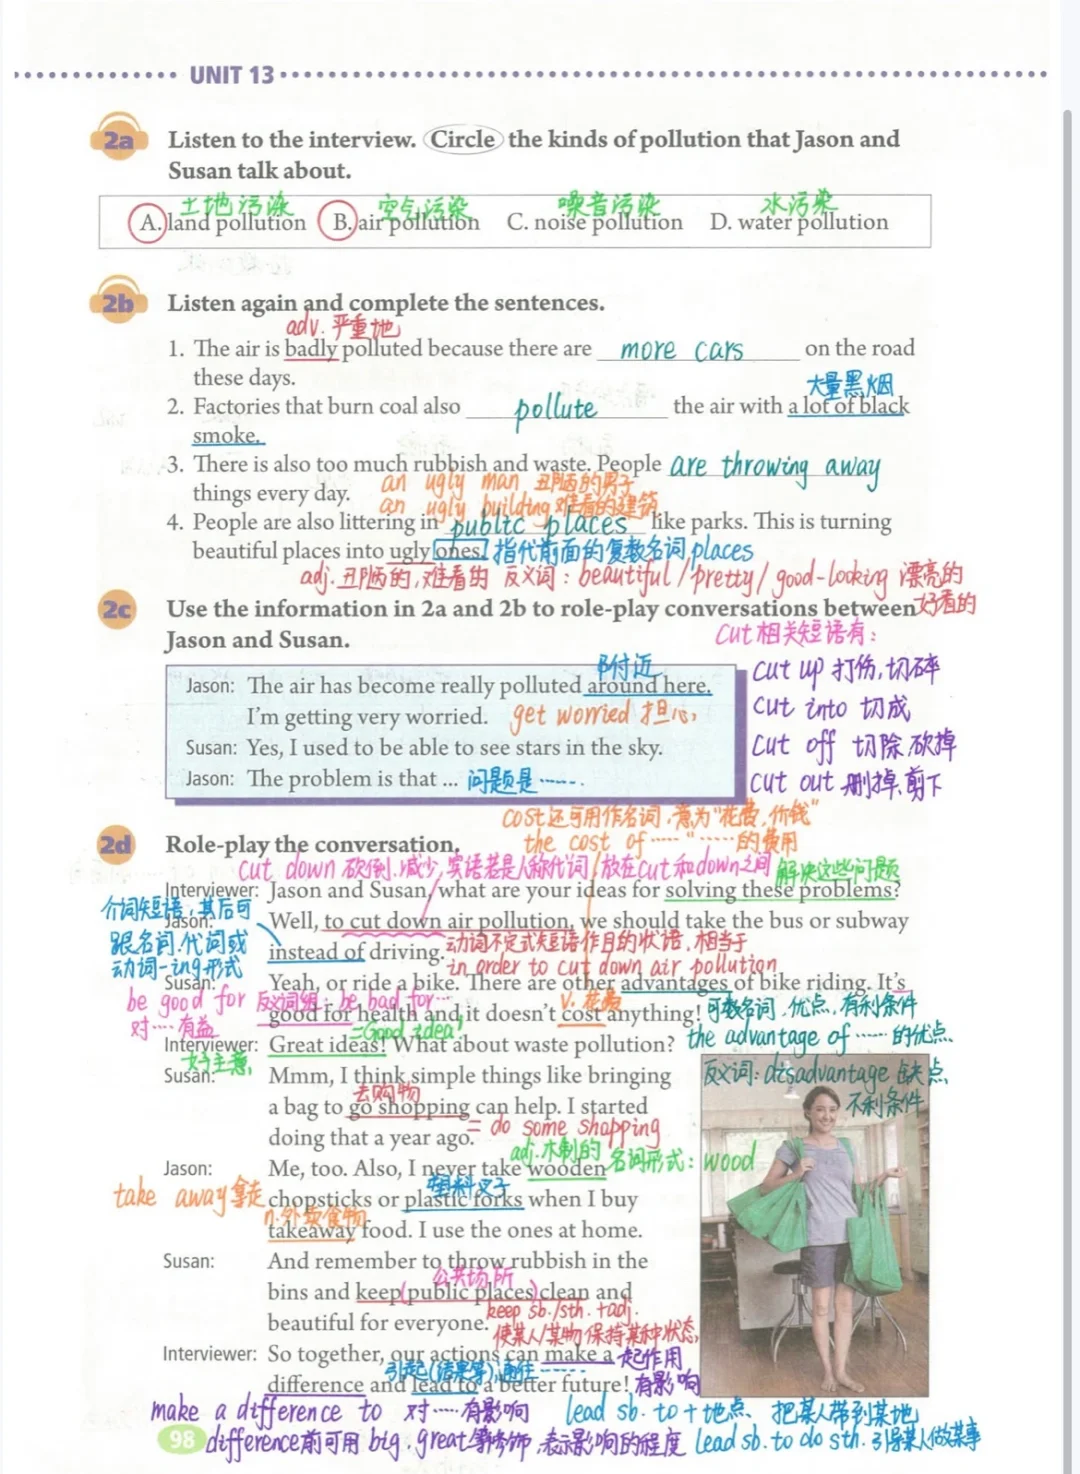 UNIT 13
2a Listen to the interview. Circle the kinds of pollution that Jason and
Susan talk about.
土地污染 空气污染 噪音污染 水污染
A. land pollution B. air pollution C. noise pollution D. water pollution
2b Listen again and complete the sentences.
adv. 严重地
1. The air is badly polluted because there are more cars on the road
these days.
大量黑烟
2. Factories that burn coal also pollute the air with a lot of black
smoke.
3. There is also too much rubbish and waste. People are throwing away
things every day.
an ugly man 丑陋的男子
an ugly building 难看的建筑
4. People are also littering in public places like parks. This is turning
beautiful places into ugly ones. 指代前面的复数名词places
adj. 丑陋的,难看的 反义词: beautiful/pretty/good-looking 漂亮的
好看的
2c Use the information in 2a and 2b to role-play conversations between
Jason and Susan.
cut相关短语有:
cut up 打伤,切碎
cut into 切成
cut off 切除,砍掉
cut out 删掉,剪下
附近
Jason: The air has become really polluted around here.
I'm getting very worried. get worried 担心
Susan: Yes, I used to be able to see stars in the sky.
Jason: The problem is that ... 问题是……
cost还可用作名词,意为"花费,价钱"
the cost of …… "……的费用
2d Role-play the conversation.
cut down 砍倒,减少,宾语若是人称代词,放在cut和down之间 解决这些问题
Interviewer: Jason and Susan, what are your ideas for solving these problems?
介词短语,其后可
跟名词.代词或
动词-ing形式
Jason: Well, to cut down air pollution, we should take the bus or subway
instead of driving. 动词不定式短语作目的状语,相当于
in order to cut down air pollution
Susan: Yeah, or ride a bike. There are other advantages of bike riding. It's
be good for 反义词组: be bad for…
对……有益
v. 花费
good for health and it doesn't cost anything! 可数名词,优点,有利条件
the advantage of …… 的优点
反义词: disadvantage 缺点,
不利条件
=Good idea!
Interviewer: Great ideas! What about waste pollution?
好主意,
Susan: Mmm, I think simple things like bringing
去购物
a bag to go shopping can help. I started
= do some shopping
doing that a year ago.
adj.木制的 名词形式: wood
Jason: Me, too. Also, I never take wooden
塑料叉子
take away 拿走 chopsticks or plastic forks when I buy
n.外卖食物
takeaway food. I use the ones at home.
Susan: And remember to throw rubbish in the
公共场所
bins and keep (public places) clean and
beautiful for everyone. keep sb./sth. +adj.
使某人/某物保持某种状态,
Interviewer: So together, our actions can make a 起作用
引起(结果等),通往……
difference and lead to a better future! 有影响
make a difference to 对……有影响 lead sb. to +地点 把某人带到某地
98 difference前可用 big, great等修饰,表示影响的程度 lead sb. to do sth. 引导某人做某事